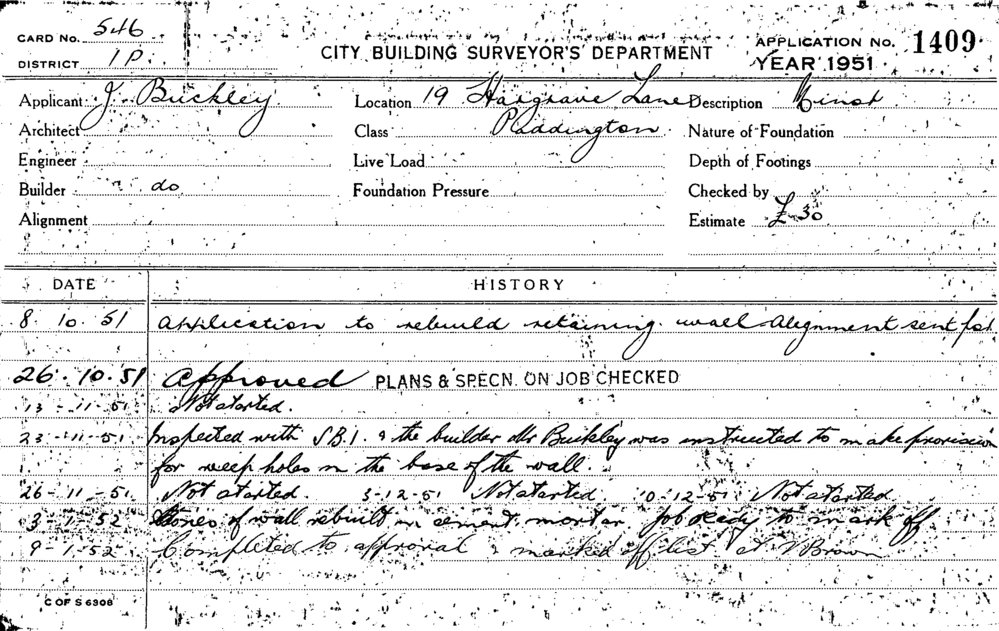 CARD No. 546
DISTRICT 1P.
CITY BUILDING SURVEYOR'S DEPARTMENT
APPLICATION No. 1409
YEAR 1951
Applicant J. Buckley Location 19 Hargrave Lane Description
Architect Class Paddington Nature of Foundation
Engineer Live Load Depth of Footings
Builder do Foundation Pressure Checked by
Alignment Estimate £30
DATE HISTORY
8. 10. 51 Application to rebuild retaining wall Alignment sent for
26. 10. 51 Approved PLANS & SPECN. ON JOB CHECKED
13-11-51 Not started.
23-11-51 Inspected with S.B.I. & the builder Mr Buckley was instructed to make provision
for weep holes in the base of the wall.
26-11-51 Not started. 3-12-51 Not started. 10.12-51 Not started
3-1-52 Stones of wall rebuilt in cement mortar. Job ready to mark off
9-1-52 Completed to approval & marked off list Brown
C OF S 6308